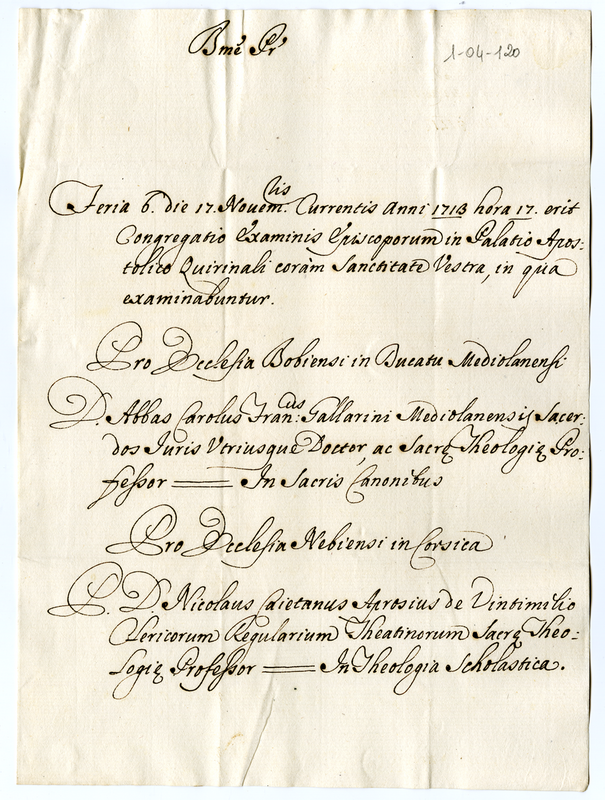 Bm̃e Pr̃
1-04-120
Feria 6. die 17. Novem:bis Currentis Anni 1713 hora 17. erit
Congregatio Examinis Episcoporum in Palatio Apos:
tolico Quirinali coràm Sanctitate Vestra, in qua
examinabuntur.
Pro Ecclesia Bobiensi in Ducatu Mediolanensi
D. Abbas Carolus Fran:cus Gallarini Mediolanensis Sacer:
dos Juris Utriusque Doctor, ac Sacrę Theologię Pro:
fessor == In Sacris Canonibus
Pro Ecclesia Nebiensi in Corsica
P. D. Nicolaus Caietanus Aprosius de Vintimilio
Clericorum Regularium Theatinorum Sacrę Theo:
logię Professor == In Theologia Scholastica.